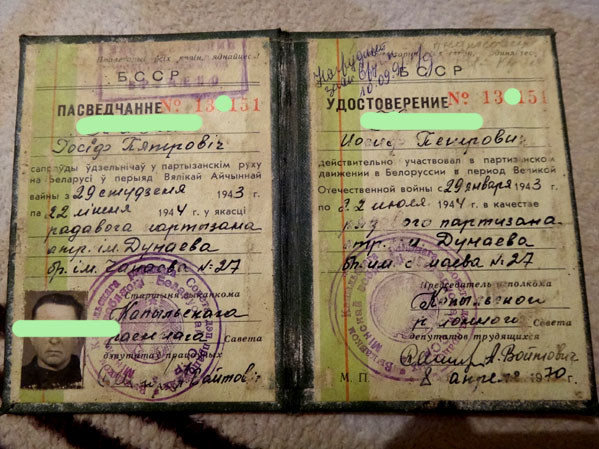 БССР
ПАСВЕДЧАННЕ № 13 151
Іосіф Пятровіч
сапраўды ўдзельнічаў у партызанскім руху
на Беларусі ў перыяд Вялікай Айчыннай
вайны з 29 студзеня 1943 г.
па 22 ліпеня 1944 г. у якасці
радавога партызана
атр. ім. Дунаева
бр. ім. Чапаева № 27
Старшыня выканкома
Капыльскага
Савета
дэпутатаў працоўных
БССР
УДОСТОВЕРЕНИЕ № 13 151
Иосиф Петрович
действительно участвовал в партизанском
движении в Белоруссии в период Великой
Отечественной войны с 29 января 1943 г.
по 22 июля 1944 г. в качестве
рядового партизана
отр. и. Дунаева
бр. им. Чапаева № 27
Председатель исполкома
Копыльского
районного Совета
депутатов трудящихся
А. Войтович
М. П. 8 апреля 1970 г.